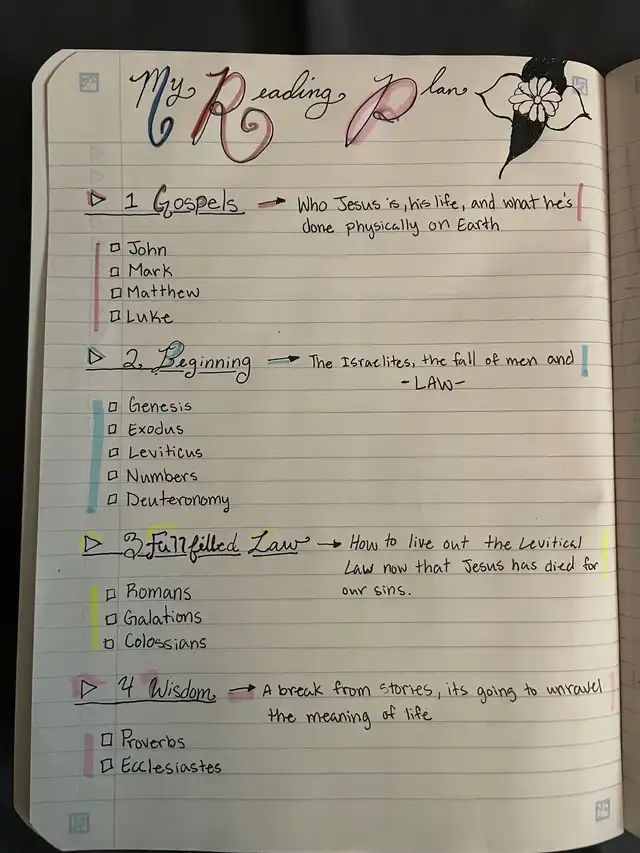 My Reading Plan
1 Gospels → Who Jesus is, his life, and what he's
done physically on Earth
John
Mark
Matthew
Luke
2. Beginning → The Israelites, the fall of men and
-LAW-
Genesis
Exodus
Leviticus
Numbers
Deuteronomy
3 Fullfilled Law → How to live out the Levitical
Law now that Jesus has died for
our sins.
Romans
Galations
Colossians
4 Wisdom → A break from stories, its going to unravel
the meaning of life
Proverbs
Ecclesiastes